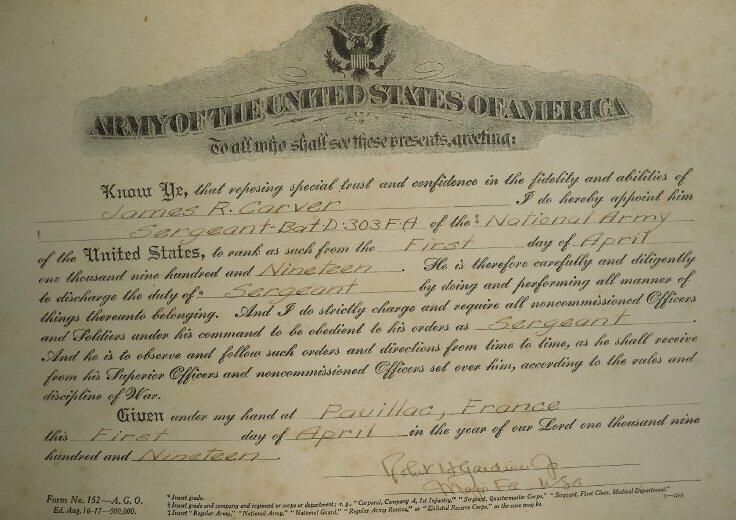 ARMY OF THE UNITED STATES OF AMERICA
To all who shall see these presents, greeting:
Know Ye, that reposing special trust and confidence in the fidelity and abilities of
James R. Carver I do hereby appoint him
† Sergeant-Bat D-303 F.A of the ‡ National Army
of the United States, to rank as such from the First day of April
one thousand nine hundred and Nineteen. He is therefore carefully and diligently
to discharge the duty of * Sergeant by doing and performing all manner of
things thereunto belonging. And I do strictly charge and require all noncommissioned Officers
and Soldiers under his command to be obedient to his orders as Sergeant.
And he is to observe and follow such orders and directions from time to time, as he shall receive
from his Superior Officers and noncommissioned Officers set over him, according to the rules and
discipline of War.
Given under my hand at Pauillac, France
this First day of April in the year of our Lord one thousand nine
hundred and Nineteen.
Robt H Gardiner Jr
Major F.A. U.S.A
Form No. 152—A. G. O.
Ed. Aug. 16-17—500,000.
* Insert grade.
† Insert grade and company and regiment or corps or department; e. g., "Corporal, Company A, 1st Infantry," "Sergeant, Quartermaster Corps," "Sergeant, First Class, Medical Department."
‡ Insert "Regular Army," "National Army," "National Guard," "Regular Army Reserve," or "Enlisted Reserve Corps," as the case may be.